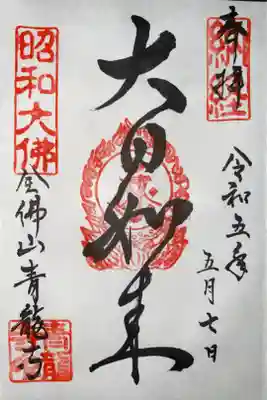 奉拝
令和五年
五月七日
大日如来
昭和大佛
全佛山青龍寺
青龍寺